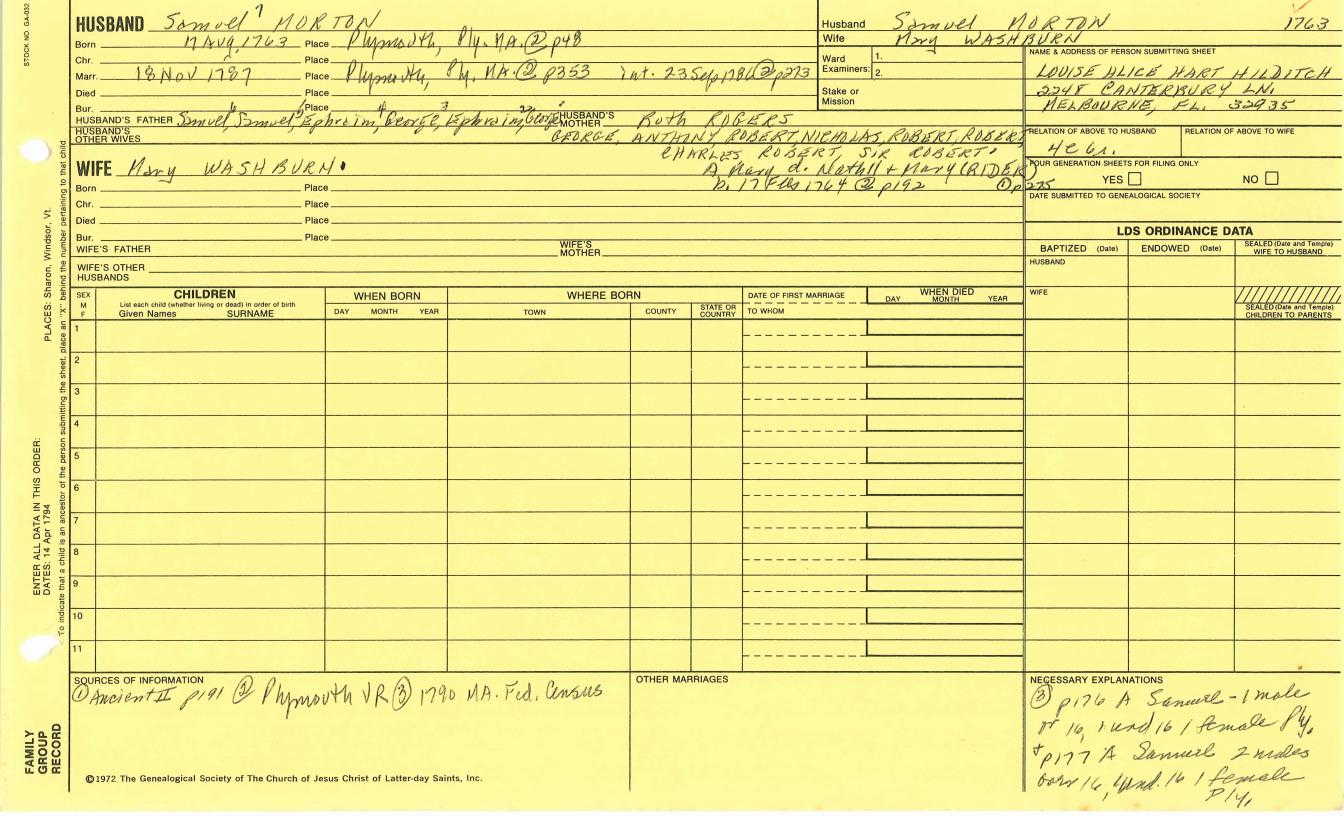 STOCK NO. GA-032
HUSBAND Samuel 7 MORTON
Born 17 Aug, 1763 Place Plymouth, Ply. MA. ② p48
Chr. Place
Marr. 18 Nov 1787 Place Plymouth, Ply. MA. ② p353 int. 23 Sep 1786 ② p273
Died Place
Bur. Place
HUSBAND'S FATHER Samuel, 6 Samuel, 5 Ephraim, 4 George, 3 Ephraim, 2 George HUSBAND'S MOTHER Ruth ROGERS
HUSBAND'S OTHER WIVES GEORGE, ANTHONY ROBERT, NICHOLAS, ROBERT, ROBERT
CHARLES ROBERT, SIR ROBERT.
WIFE Mary WASHBURN. A Mary d. Nath'll + Mary (RIDER)
b. 17 Feb 1764 ② p192 ① p275
Born Place
Chr. Place
Died Place
Bur. Place
WIFE'S FATHER WIFE'S MOTHER
WIFE'S OTHER HUSBANDS
Husband Samuel MORTON 1763
Wife Mary WASHBURN
Ward Examiners: 1.
2.
Stake or Mission
NAME & ADDRESS OF PERSON SUBMITTING SHEET
LOUISE ALICE HART HILDITCH
2248 CANTERBURY LN.
MELBOURNE, FL. 32935
RELATION OF ABOVE TO HUSBAND RELATION OF ABOVE TO WIFE
4C 6r.
FOUR GENERATION SHEETS FOR FILING ONLY
YES NO
DATE SUBMITTED TO GENEALOGICAL SOCIETY
LDS ORDINANCE DATA
BAPTIZED (Date) ENDOWED (Date) SEALED (Date and Temple) WIFE TO HUSBAND
HUSBAND
WIFE
SEALED (Date and Temple) CHILDREN TO PARENTS
SEX M F CHILDREN WHEN BORN WHERE BORN DATE OF FIRST MARRIAGE WHEN DIED
List each child (whether living or dead) in order of birth
Given Names SURNAME DAY MONTH YEAR TOWN COUNTY STATE OR COUNTRY TO WHOM DAY MONTH YEAR
1
2
3
4
5
6
7
8
9
10
11
SOURCES OF INFORMATION
① Ancient II p191 ② Plymouth VR ③ 1790 MA. Fed. Census
OTHER MARRIAGES
NECESSARY EXPLANATIONS
③ p176 A Samuel - 1 male
16, 1 und 16 1 female Ply.
+ p177 A Samuel 2 males
over 16, und. 16 1 female
Ply.
©1972 The Genealogical Society of The Church of Jesus Christ of Latter-day Saints, Inc.
FAMILY GROUP RECORD
ENTER ALL DATA IN THIS ORDER:
DATES: 14 Apr 1794
PLACES: Sharon, Windsor, Vt.
To indicate that a child is an ancestor of the person submitting the sheet, place an "X" behind the number pertaining to that child